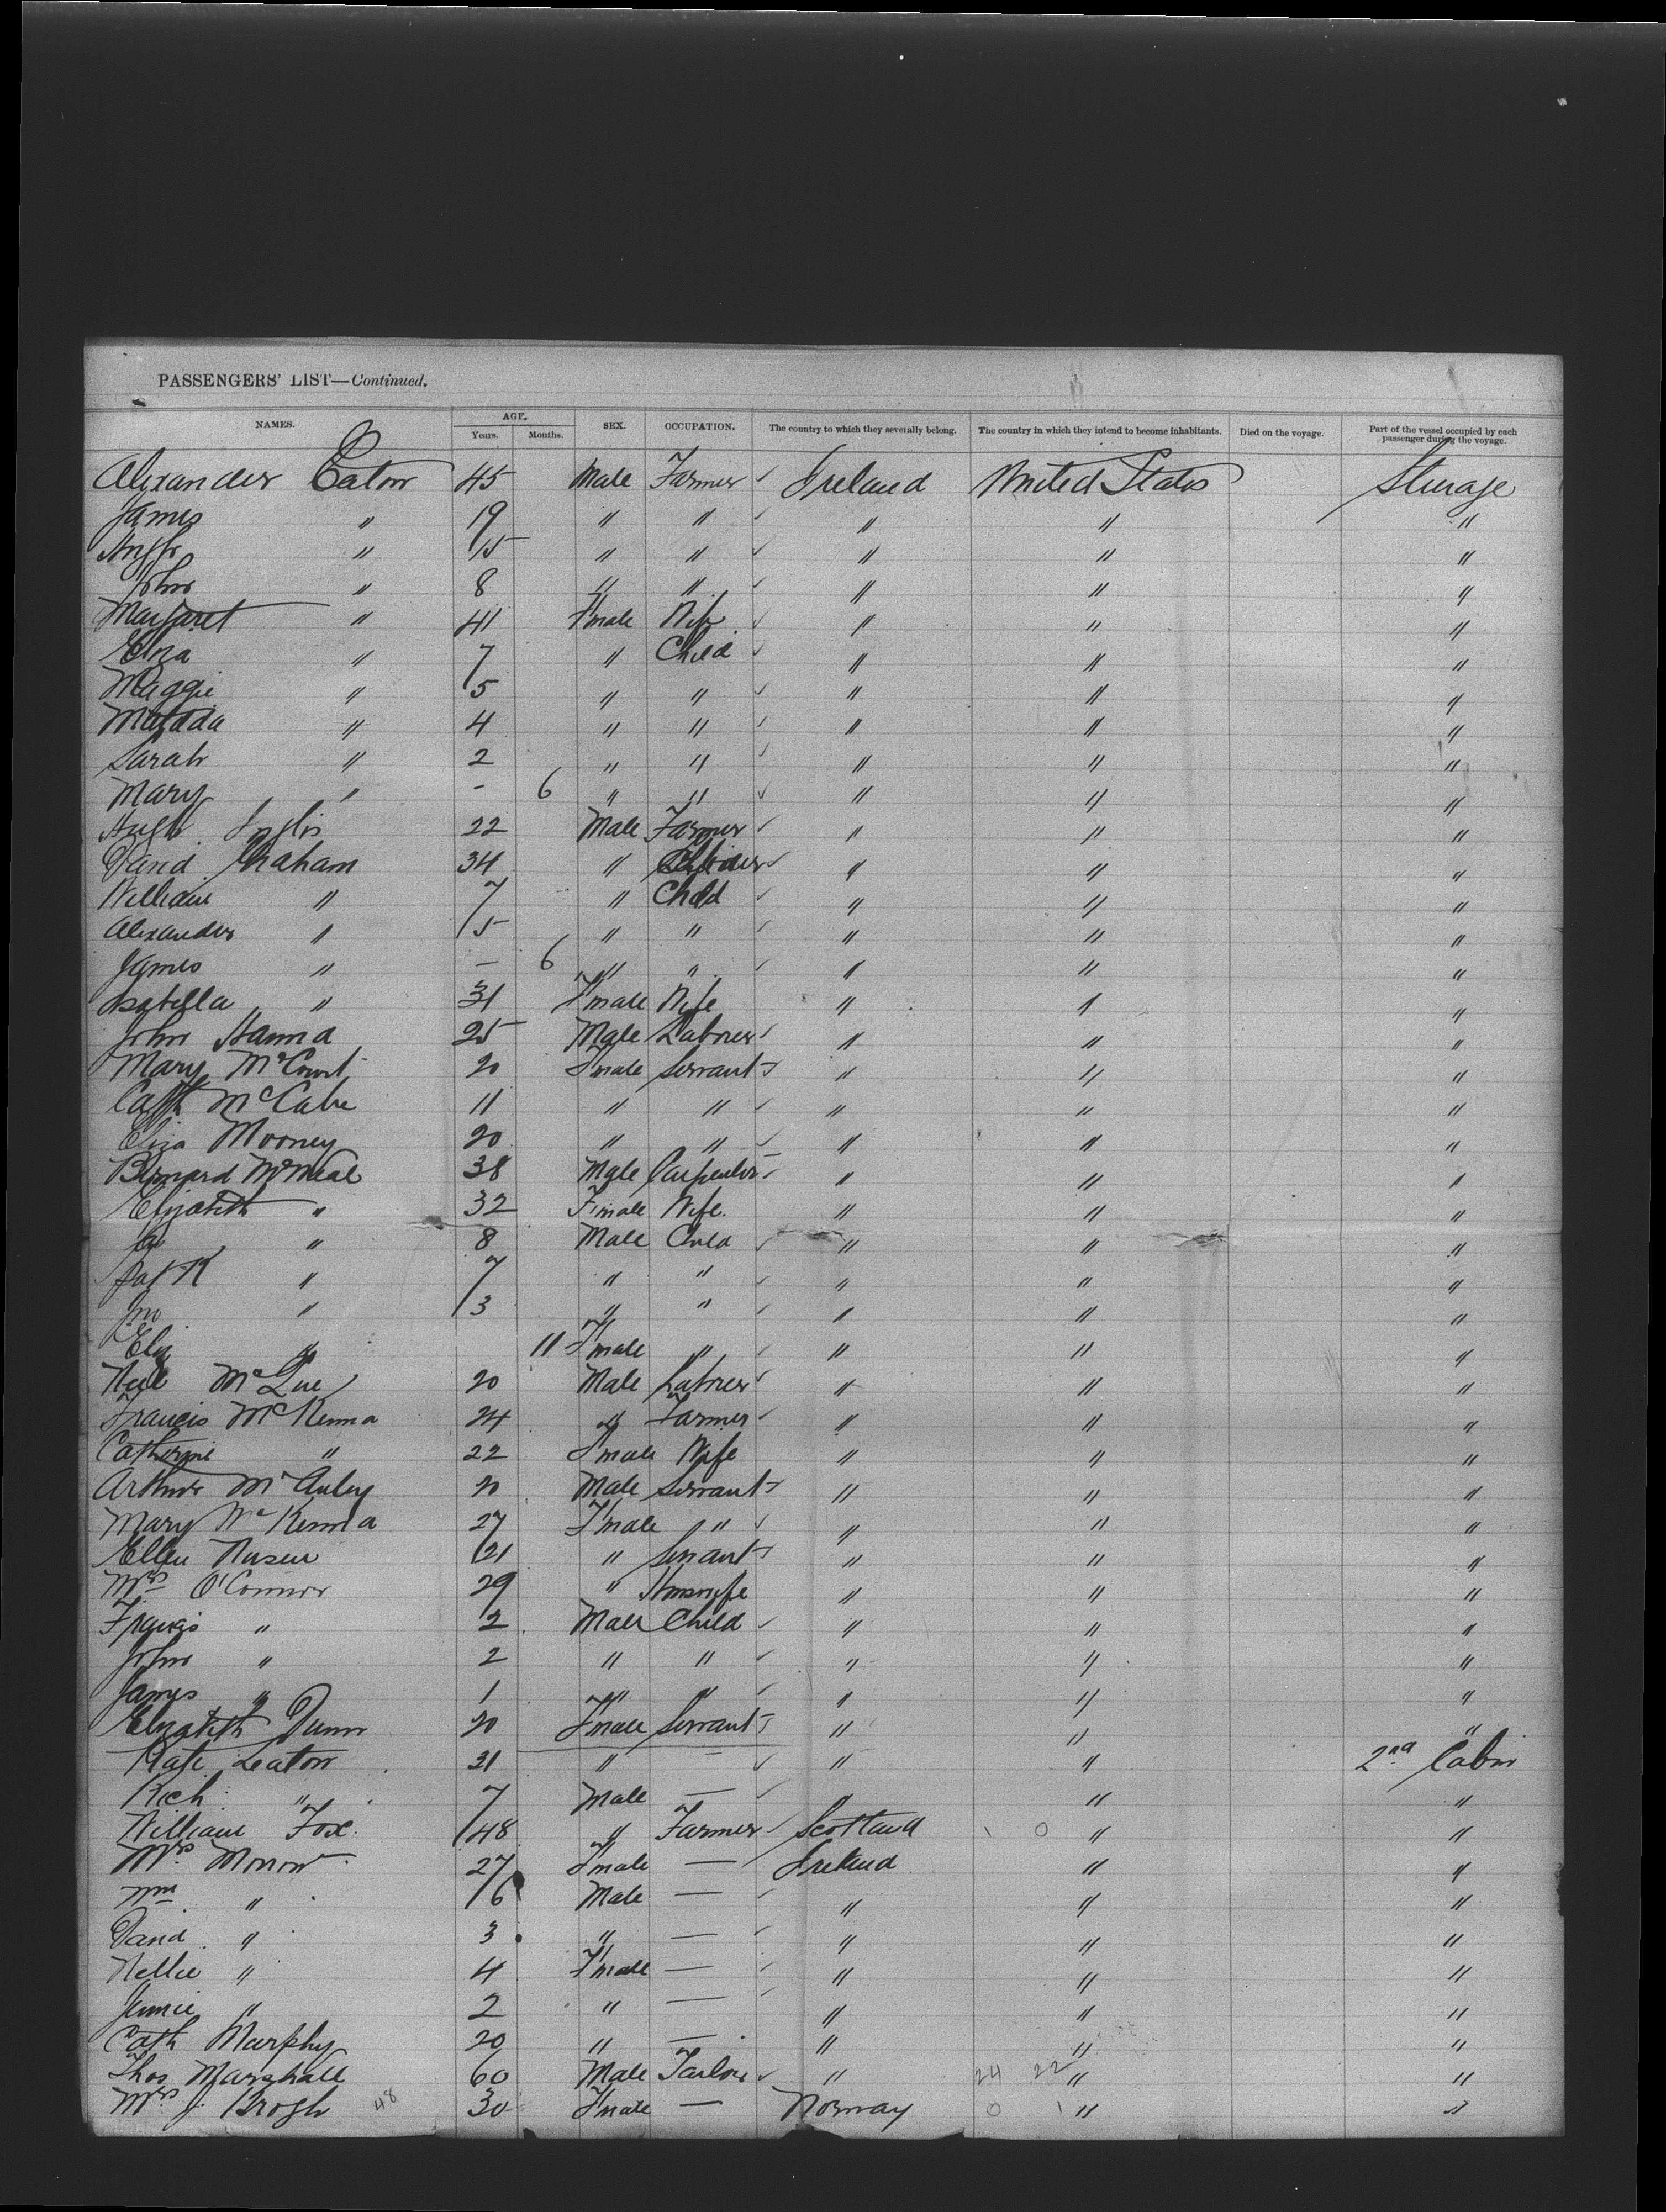 PASSENGERS' LIST—Continued.
NAMES. AGE. Years. Months. SEX. OCCUPATION. The country to which they severally belong. The country in which they intend to become inhabitants. Died on the voyage. Part of the vessel occupied by each passenger during the voyage.
Alexander Eaton 45 Male Farmer ✓ Ireland United States Sturage
James " 19 " " ✓ " " "
Hugh " 15 " " ✓ " " "
John " 8 " " ✓ " " "
Margaret " 41 Fmale Wife ✓ " " "
Eliza " 7 " Child ✓ " " "
Maggie " 5 " " ✓ " " "
Matilda " 4 " " ✓ " " "
Sarah " 2 " " ✓ " " "
Mary " - 6 " " ✓ " " "
Hugh Inglis 22 Male Farmer ✓ " " "
David Graham 34 " ✓ " " "
William " 7 " Child ✓ " " "
Alexander " 5 " " ✓ " " "
James " — 6 " " ✓ " " "
Isabella " 31 Fmale Wife " " "
John Hanna 25 Male Laborer ✓ " " "
Mary McCourt 20 Fmale Servant ✓ " " "
Cath McCabe 11 " " ✓ " " "
Eliza Mooney 20 " " ✓ " " "
Bernard McNeal 38 Male Carpenter ✓ " " "
Elizabeth " 32 Female Wife " " "
" 8 Male Child ✓ " " "
Pat K " 7 " " ✓ " " "
Jno " 3 " " ✓ " " "
Eliz " 11 Fmale " ✓ " " "
Neil McQue 20 Male Laborer ✓ " " "
Francis McKenna 24 " Farmer ✓ " " "
Catherine " 22 Fmale Wife " " "
Arthur McAuley 20 Male Servant ✓ " " "
Mary McKenna 27 Fmale " ✓ " " "
Ellen 21 " Servant ✓ " " "
Mrs O'Connor 29 " Housewife " " "
Francis " 2 Male Child ✓ " " "
John " 2 " " ✓ " " "
James " 1 " " ✓ " " "
Elizabeth Dunn 20 Fmale Servant ✓ " " "
Kate Seaton 31 " — ✓ " " 2nd Cabin
Rich " 7 Male — ✓ " " "
William Fox 48 " Farmer ✓ Scotland 1 0 " "
Mrs Morrow 27 Fmale — Ireland " "
Wm " 6 Male — ✓ " " "
David " 3 " — ✓ " " "
Nellie " 4 Fmale — ✓ " " "
Jennie " 2 " — ✓ " " "
Cath Murphy 20 " — " " "
Thos Marshall 60 Male Tailor ✓ " 24 22 " "
Mrs J. Krogh 48 30 Fmale — Norway 0 1 " "